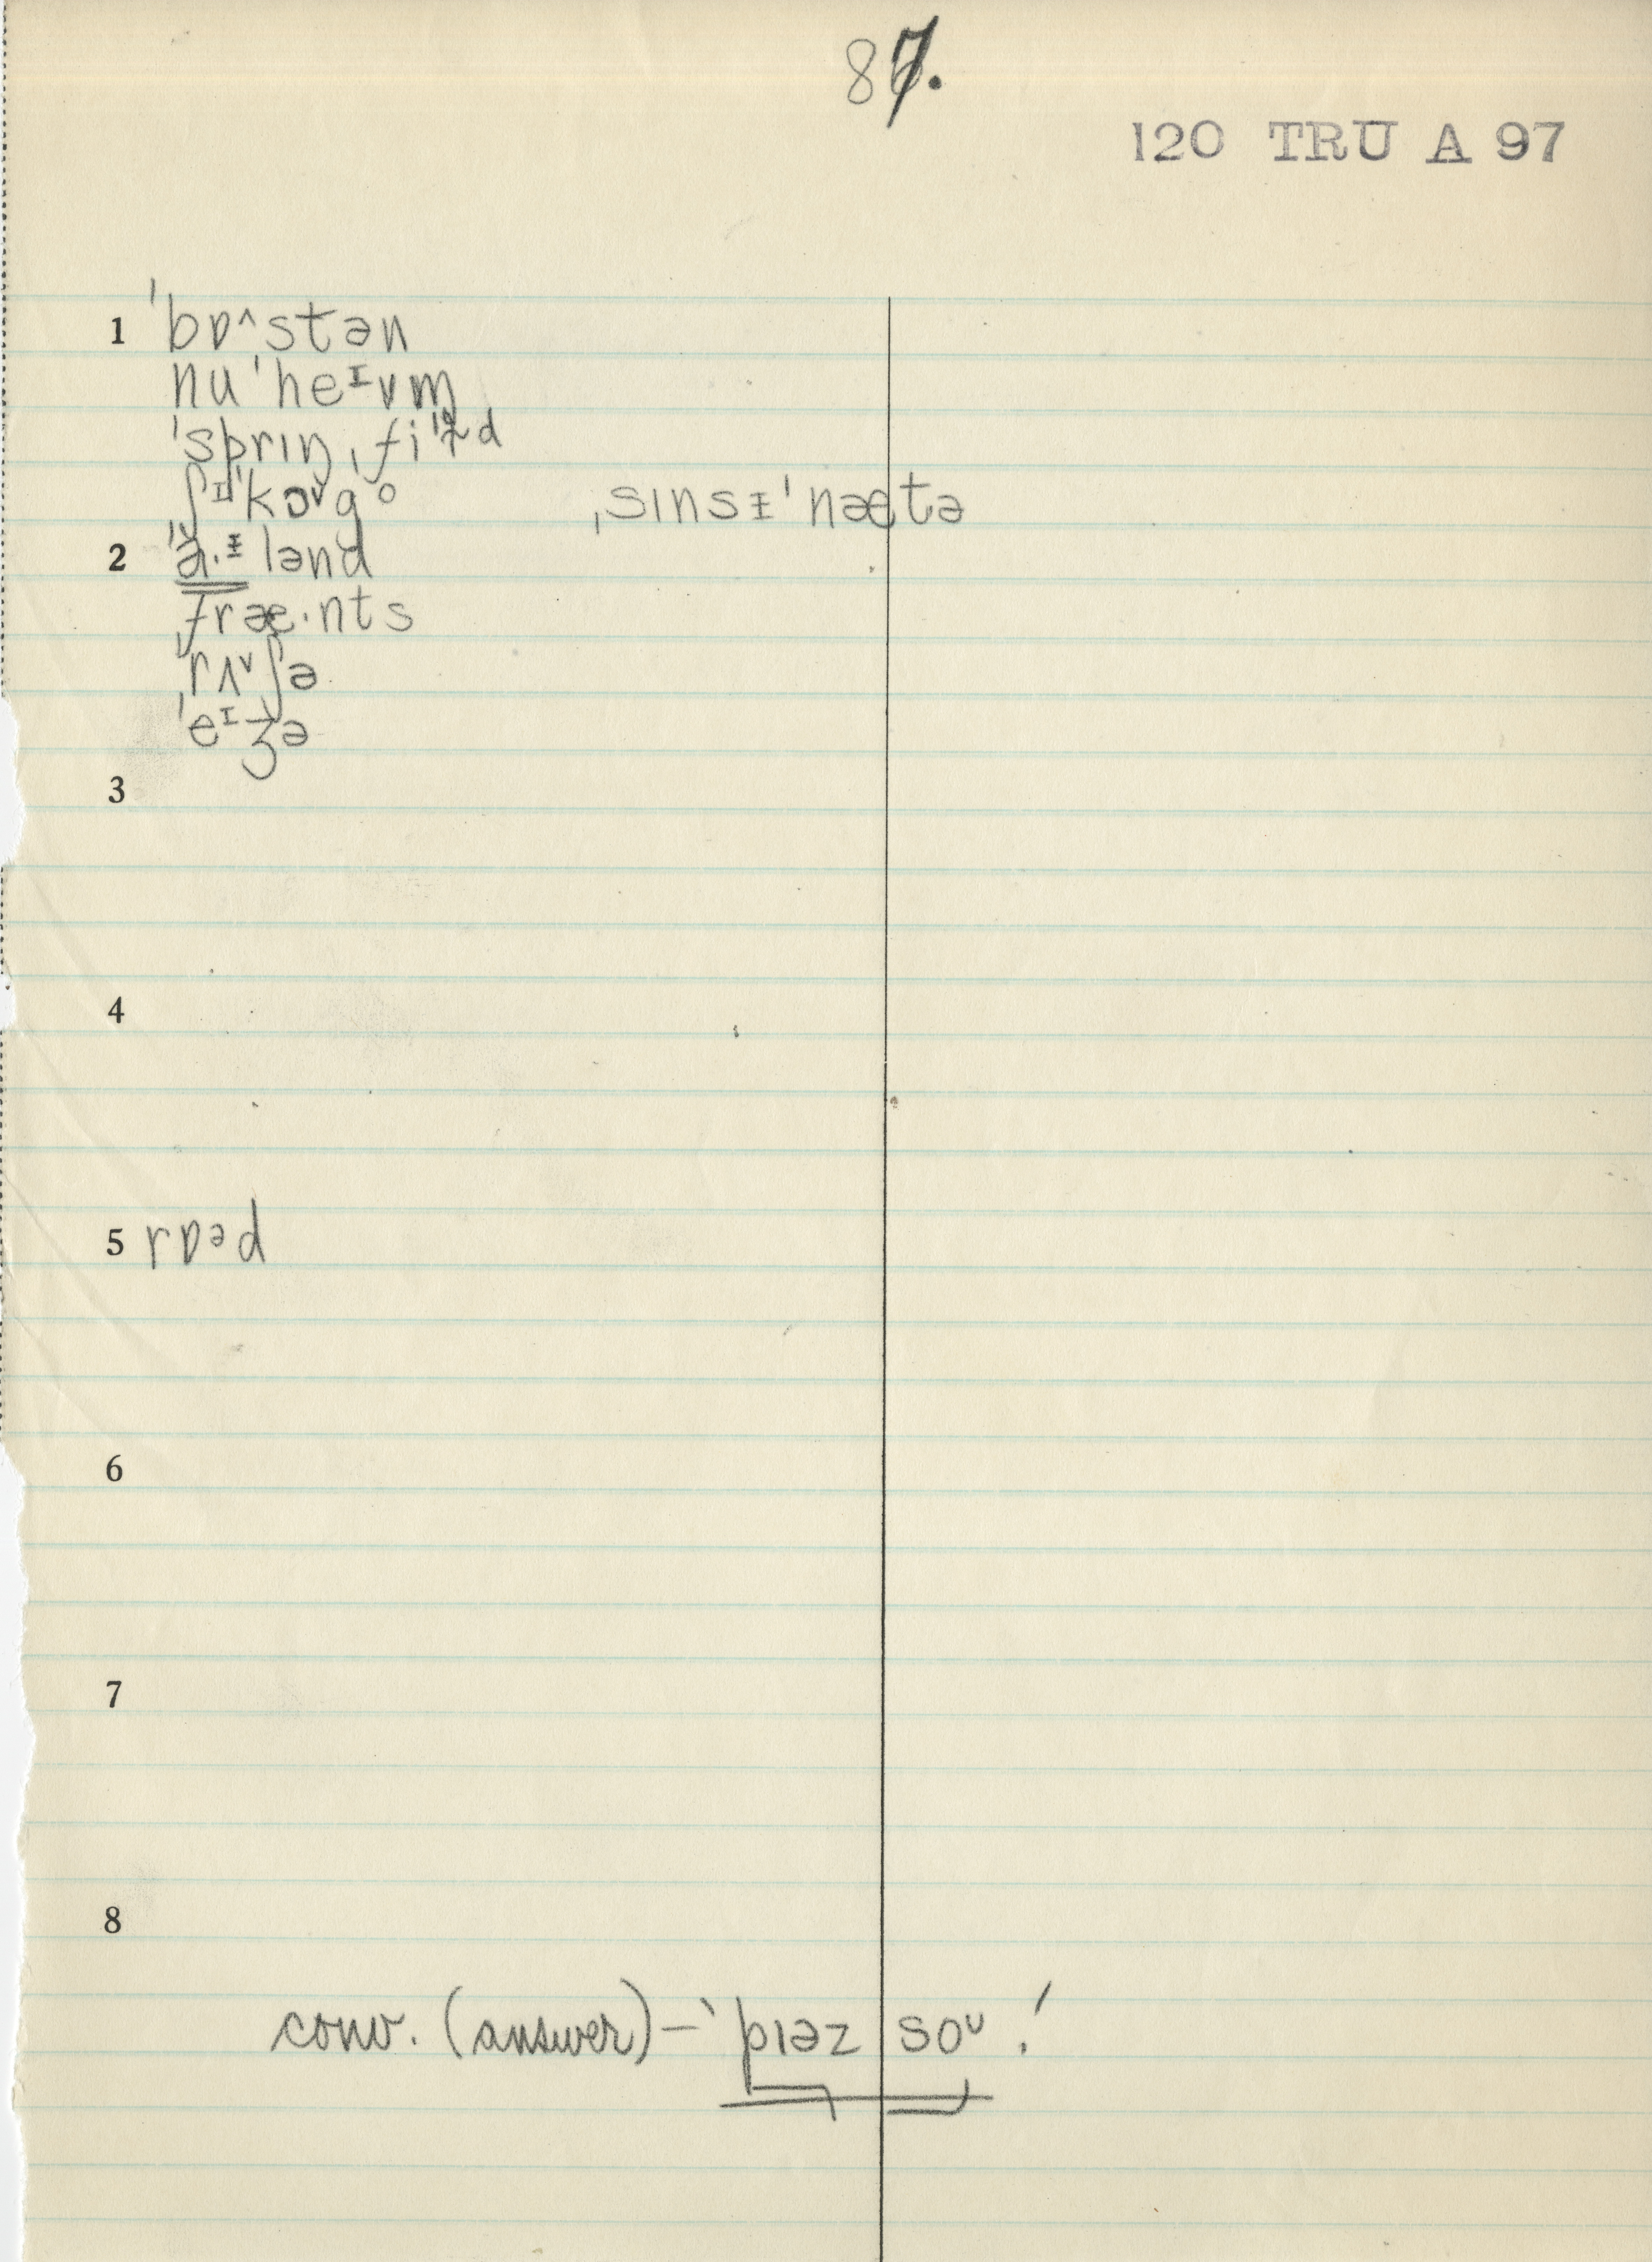 87.
120 TRU A 97
1 ˈbɒ^stən
nuˈheɪvm̩
ˈsprɪŋˌfi
ʃɪˈkɔ˅go ˌsɪnsɪ̵ˈnætə
2 ˈa·ɪ̵lənd
fræ·nts
ˈrʌ˅ʃə
ˈeɪʒə
3
4
5 rɒəd
6
7
8
conv. (answer) – ˈpɪəz soᴜ!